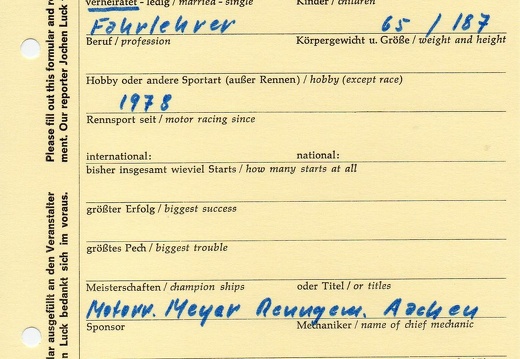 verheiratet - ledig / married - single Kinder / children
Fahrlehrer 65 / 187
Beruf / profession Körpergewicht u. Größe / weight and height
Hobby oder andere Sportart (außer Rennen) / hobby (except race)
1978
Rennsport seit / motor racing since
international: national:
bisher insgesamt wieviel Starts / how many starts at all
größter Erfolg / biggest success
größtes Pech / biggest trouble
Meisterschaften / champion ships oder Titel / or titles
Motorr. Meyer Renngem. Aachen
Sponsor Mechaniker / name of chief mechanic
Please fill out this formular and r
ment. Our reporter Jochen Luck
lar ausgefüllt an den Veranstalter
n Luck bedankt sich im voraus.